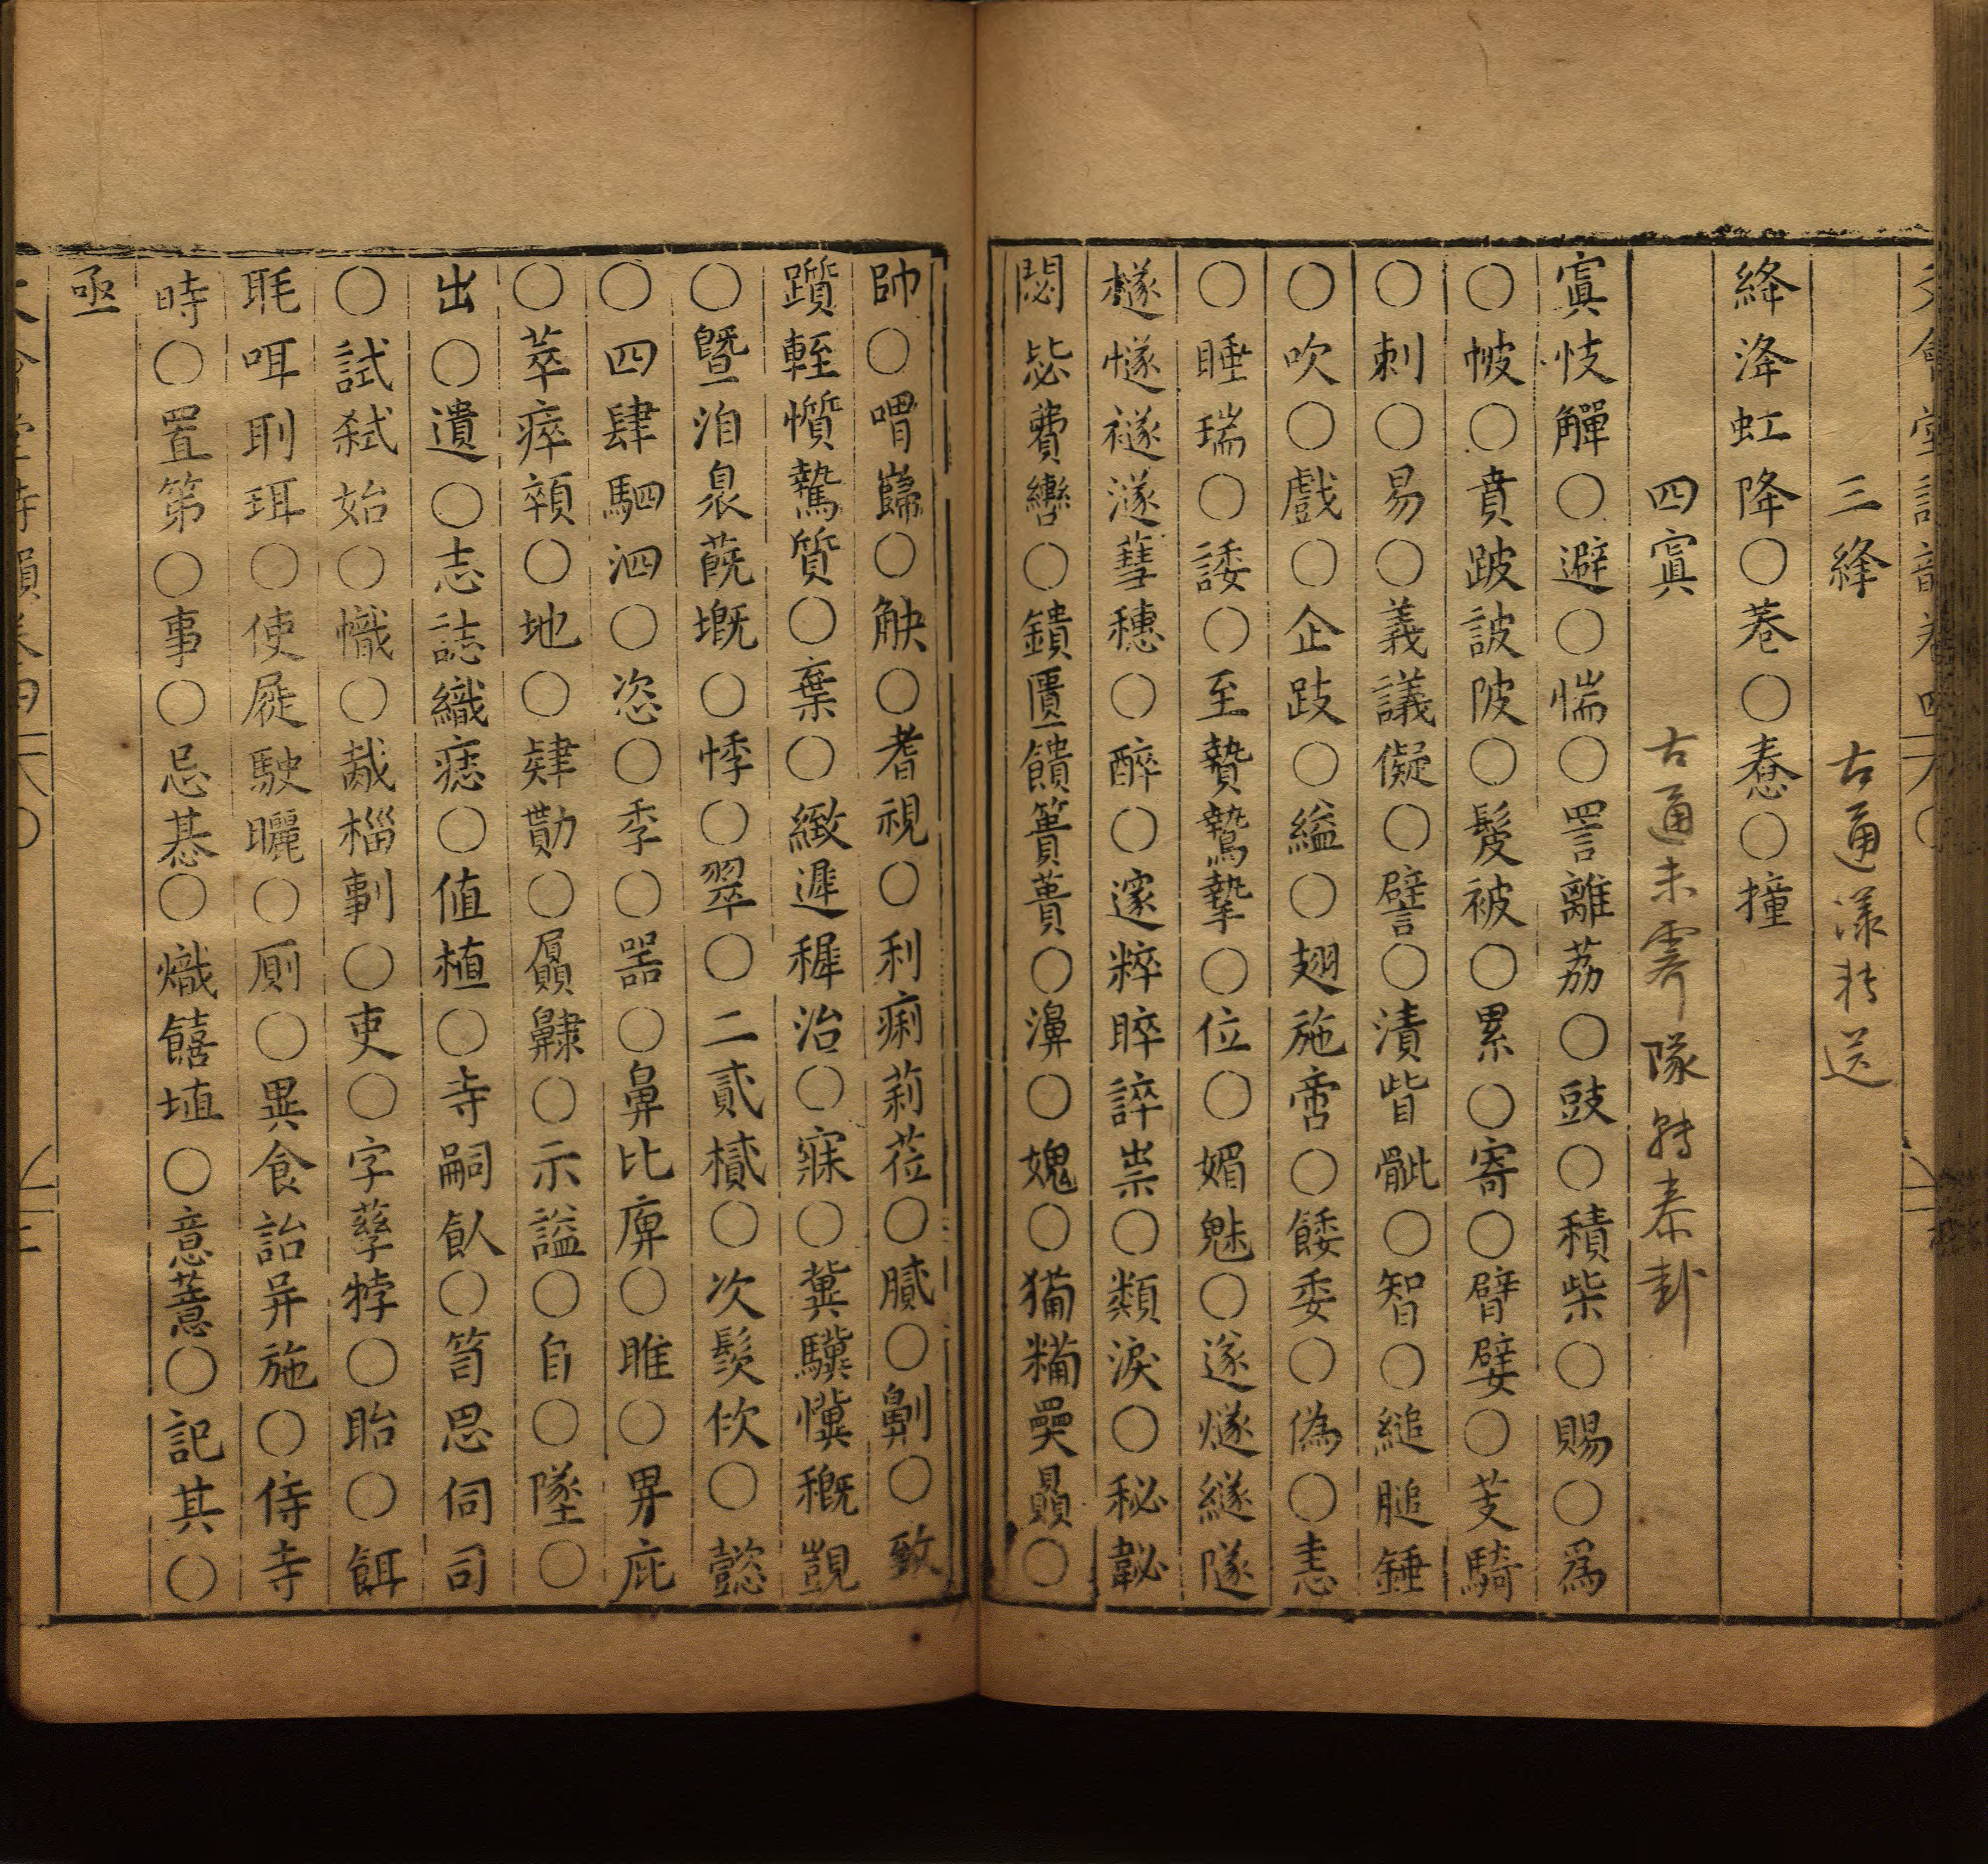 三絳 古通漾轉送
絳洚虹降○巷○惷○撞
四寘 古通未霽隊轉泰卦
寘忮觶○避○惴○詈離荔○豉○積柴○賜○爲
○帔○賁跛詖陂○髲被○累○寄○臂嬖○芰騎
○刺○易○義議儗○譬○漬眥骴○智○縋膇錘
○吹○戲○企跂○縊○翅施啻○餧委○偽○恚
○睡瑞○諉○至贄鷙摯○位○媚魅○遂燧繸隧
檖㥞襚澻彗穗○醉○邃粹睟誶祟○類淚○秘毖
閟毖費轡○鐀匱饋簣蕢○濞○媿○犕糒奰贔○
帥○喟巋○觖○耆視○利痢莉蒞○膩○劓○致
躓輊懫騺質○棄○緻遲稺治○寐○冀驥懻穊覬
○曁洎㒫蔇塈○悸○翠○二貳樲○次髮佽○懿
○四肆駟泗○恣○季○器○鼻比庳○睢○畀庇
○萃瘁顇○地○肄勩○屭齂○示謚○自○墜○
出○遺○志誌織痣○値植○寺嗣飤○笥思伺司
○試弒始○幟○胾椔剚○吏○字孳牸○眙○餌
毦咡刵珥○使屣駛曬○厠○異食詒异施○侍寺
時○置第○事○忌惎○熾饎埴○意薏○記其○
亟